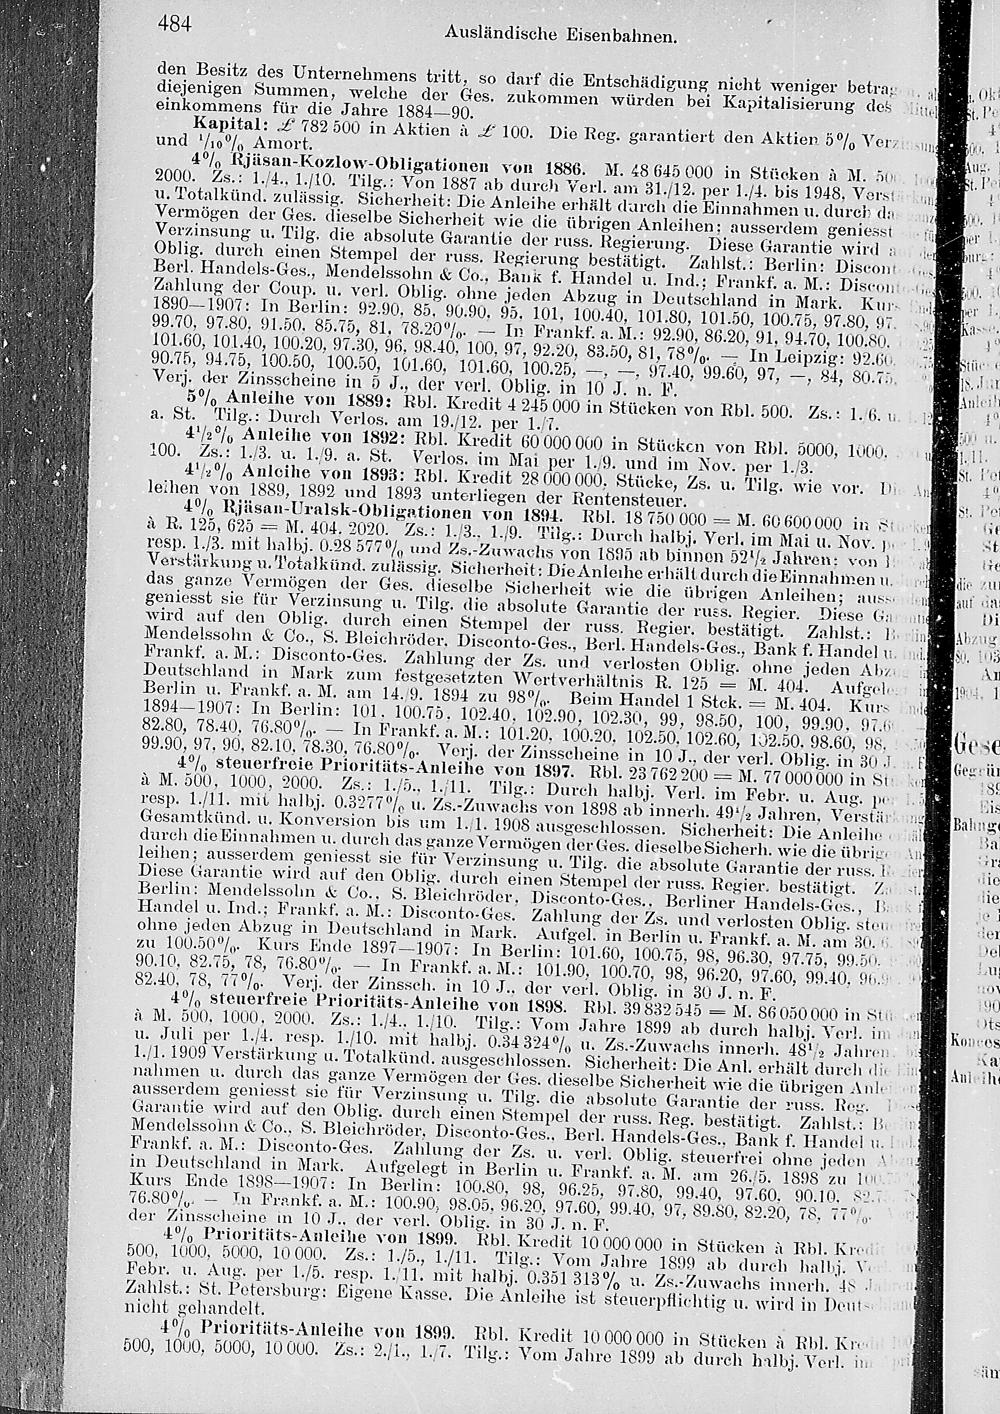 484
Ausländische Eisenbahnen.
den Besitz des Unternehmens tritt, so darf die Entschädigung nicht weniger
diejenigen Summen, welche der Ges. zukommen würden bei Kapitalisierung des
einkommens für die Jahre 1884—90.
Kapital: £ 782 500 in Aktien à £ 100. Die Reg. garantiert den Aktien 5% 
und 1/10% Amort.
4% Rjäsan-Kozlow-Obligationen von 1886. M. 48 645 000 in Stücken à M.
2000. Zs.: 1./4., 1./10. Tilg.: Von 1887 ab durch Verl. am 31./12. per 1./4. bis 1948,
u. Totalkünd. zulässig. Sicherheit: Die Anleihe erhält durch die Einnahmen u. durch
Vermögen der Ges. dieselbe Sicherheit wie die übrigen Anleihen; ausserdem geniesst
Verzinsung u. Tilg. die absolute Garantie der russ. Regierung. Diese Garantie wird
Oblig. durch einen Stempel der russ. Regierung bestätigt. Zahlst.: Berlin:
Berl. Handels-Ges., Mendelssohn & Co., Bank f. Handel u. Ind.; Frankf. a. M.:
Zahlung der Coup. u. verl. Oblig. ohne jeden Abzug in Deutschland in Mark. Kurs
1890—1907: In Berlin: 92.90, 85, 90.90, 95, 101, 100.40, 101.80, 101.50, 100.75, 97.80,
99.70, 97.80, 91.50, 85.75, 81, 78.20%. — In Frankf. a. M.: 92.90, 86.20, 91, 94.70, 100.80,
101.60, 101.40, 100.20, 97.30, 96, 98.40, 100, 97, 92.20, 83.50, 81, 78%. — In Leipzig: 92.60,
90.75, 94.75, 100.50, 100.50, 101.60, 101.60, 100.25, —, —, 97.40, 99.60, 97, —, 84, 80.75,
Verj. der Zinsscheine in 5 J., der verl. Oblig. in 10 J. n. F.
5% Anleihe von 1889: Rbl. Kredit 4 245 000 in Stücken von Rbl. 500. Zs.: 1./6. u.
a. St. Tilg.: Durch Verlos. am 19./12. per 1./7.
4 1/2% Anleihe von 1892: Rbl. Kredit 60 000 000 in Stücken von Rbl. 5000, 1000,
100. Zs.: 1./3. u. 1./9. a. St. Verlos. im Mai per 1./9. und im Nov. per 1./3.
4 1/2% Anleihe von 1893: Rbl. Kredit 28 000 000. Stücke, Zs. u. Tilg. wie vor.
leihen von 1889, 1892 und 1893 unterliegen der Rentensteuer.
4% Rjäsan-Uralsk-Obligationen von 1894. Rbl. 18 750 000 = M. 60 600 000 in
à R. 125, 625 = M. 404, 2020. Zs.: 1./3., 1./9. Tilg.: Durch halbj. Verl. im Mai u. Nov.
resp. 1./3. mit halbj. 0.28 577% und Zs.-Zuwachs von 1895 ab binnen 52 1/2 Jahren; von
Verstärkung u. Totalkünd. zulässig. Sicherheit: Die Anleihe erhält durch die Einnahmen u.
das ganze Vermögen der Ges. dieselbe Sicherheit wie die übrigen Anleihen;
geniesst sie für Verzinsung u. Tilg. die absolute Garantie der russ. Regier. Diese
wird auf den Oblig. durch einen Stempel der russ. Regier. bestätigt. Zahlst.:
Mendelssohn & Co., S. Bleichröder, Disconto-Ges., Berl. Handels-Ges., Bank f. Handel u.
Frankf. a. M.: Disconto-Ges. Zahlung der Zs. und verlosten Oblig. ohne jeden
Deutschland in Mark zum festgesetzten Wertverhältnis R. 125 = M. 404.
Berlin u. Frankf. a. M. am 14./9. 1894 zu 98%. Beim Handel 1 Stck. = M. 404. Kurs
1894—1907: In Berlin: 101, 100.75, 102.40, 102.90, 102.30, 99, 98.50, 100, 99.90, 97.60,
82.80, 78.40, 76.80%. — In Frankf. a. M.: 101.20, 100.20, 102.50, 102.60, 102.50, 98.60, 98,
99.90, 97, 90, 82.10, 78.30, 76.80%. Verj. der Zinsscheine in 10 J., der verl. Oblig. in 30 J.
4% steuerfreie Prioritäts-Anleihe von 1897. Rbl. 23 762 200 = M. 77 000 000 in
à M. 500, 1000, 2000. Zs.: 1./5., 1./11. Tilg.: Durch halbj. Verl. im Febr. u. Aug.
resp. 1./11. mit halbj. 0.3277% u. Zs.-Zuwachs von 1898 ab innerh. 49 1/2 Jahren,
Gesamtkünd. u. Konversion bis um 1./1. 1908 ausgeschlossen. Sicherheit: Die Anleihe
durch die Einnahmen u. durch das ganze Vermögen der Ges. dieselbe Sicherh. wie die
leihen; ausserdem geniesst sie für Verzinsung u. Tilg. die absolute Garantie der russ.
Diese Garantie wird auf den Oblig. durch einen Stempel der russ. Regier. bestätigt.
Berlin: Mendelssohn & Co., S. Bleichröder, Disconto-Ges., Berliner Handels-Ges.,
Handel u. Ind.; Frankf. a. M.: Disconto-Ges. Zahlung der Zs. und verlosten Oblig.
ohne jeden Abzug in Deutschland in Mark. Aufgel. in Berlin u. Frankf. a. M. am 30.
zu 100.50%. Kurs Ende 1897—1907: In Berlin: 101.60, 100.75, 98, 96.30, 97.75, 99.50,
90.10, 82.75, 78, 76.80%. — In Frankf. a. M.: 101.90, 100.70, 98, 96.20, 97.60, 99.40,
82.40, 78, 77%. Verj. der Zinssch. in 10 J., der verl. Oblig. in 30 J. n. F.
4% steuerfreie Prioritäts-Anleihe von 1898. Rbl. 39 832 545 = M. 86 050 000 in
à M. 500, 1000, 2000. Zs.: 1./4., 1./10. Tilg.: Vom Jahre 1899 ab durch halbj. Verl. im
u. Juli per 1./4. resp. 1./10. mit halbj. 0.34 324% u. Zs.-Zuwachs innerh. 48 1/2 Jahren,
1./1. 1909 Verstärkung u. Totalkünd. ausgeschlossen. Sicherheit: Die Anl. erhält durch die
nahmen u. durch das ganze Vermögen der Ges. dieselbe Sicherheit wie die übrigen
ausserdem geniesst sie für Verzinsung u. Tilg. die absolute Garantie der russ. Reg.
Garantie wird auf den Oblig. durch einen Stempel der russ. Reg. bestätigt. Zahlst.:
Mendelssohn & Co., S. Bleichröder, Disconto-Ges., Berl. Handels-Ges., Bank f. Handel u.
Frankf. a. M.: Disconto-Ges. Zahlung der Zs. u. verl. Oblig. steuerfrei ohne jeden
in Deutschland in Mark. Aufgelegt in Berlin u. Frankf. a. M. am 26./5. 1898 zu
Kurs Ende 1898—1907: In Berlin: 100.80, 98, 96.25, 97.80, 99.40, 97.60, 90.10,
76.80%. — In Frankf. a. M.: 100.90, 98.05, 96.20, 97.60, 99.40, 97, 89.80, 82.20, 78, 77%.
der Zinsscheine in 10 J., der verl. Oblig. in 30 J. n. F.
4% Prioritäts-Anleihe von 1899. Rbl. Kredit 10 000 000 in Stücken à Rbl.
500, 1000, 5000, 10 000. Zs.: 1./5., 1./11. Tilg.: Vom Jahre 1899 ab durch halbj.
Febr. u. Aug. per 1./5. resp. 1./11. mit halbj. 0.351 313% u. Zs.-Zuwachs innerh. 48
Zahlst.: St. Petersburg: Eigene Kasse. Die Anleihe ist steuerpflichtig u. wird in
nicht gehandelt.
4% Prioritäts-Anleihe von 1899. Rbl. Kredit 10 000 000 in Stücken à Rbl.
500, 1000, 5000, 10 000. Zs.: 2./1., 1./7. Tilg.: Vom Jahre 1899 ab durch halbj. Verl.